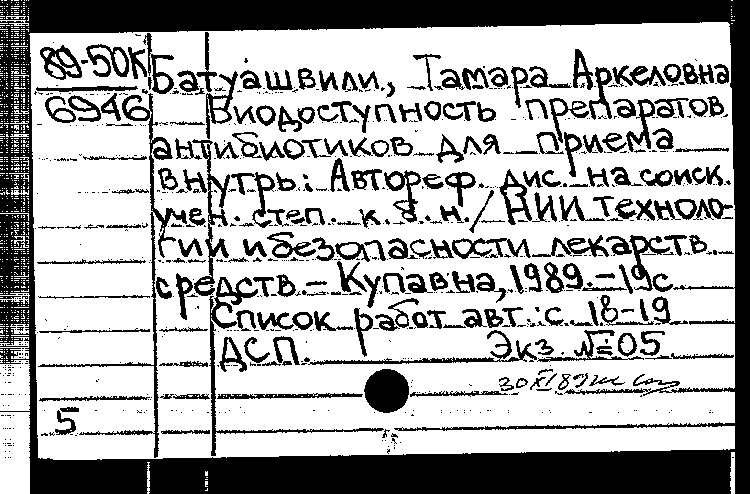 89-50К
6946
Батуашвили, Тамара Аркеловна
Биодоступность препаратов
антибиотиков для приема
внутрь: Автореф. дис. на соиск.
учен. степ. к. б. н. / НИИ техноло-
гии и безопасности лекарств.
средств. – Купавна, 1989. – 19 с
Список работ авт.: с. 18-19
ДСП. Экз. №: 05
30 XI 89
5